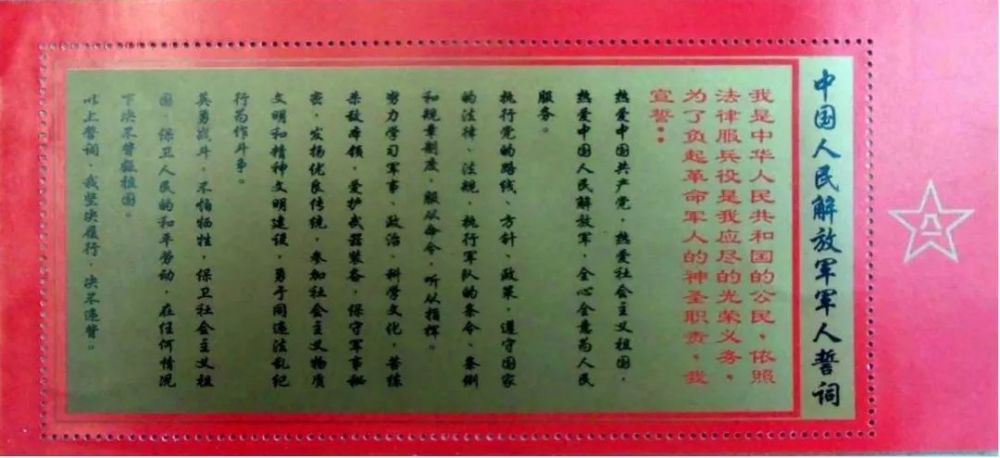 中国人民解放军军人誓词
我是中华人民共和国的公民，依照
法律服兵役是我应尽的光荣义务，
为了负起革命军人的神圣职责，我
宣誓：
热爱中国共产党，热爱社会主义祖国，
热爱中国人民解放军，全心全意为人民
服务。
执行党的路线、方针、政策，遵守国家
的法律、法规，执行军队的条令、条例
和规章制度，服从命令，听从指挥。
努力学习军事、政治、科学文化，苦练
杀敌本领，爱护武器装备，保守军事秘
密，发扬优良传统，参加社会主义物质
文明和精神文明建设，勇于同违法乱纪
行为作斗争。
英勇战斗，不怕牺牲，保卫社会主义祖
国，保卫人民的和平劳动，在任何情况
下决不背叛祖国。
以上誓词，我坚决履行，决不违背。
八一